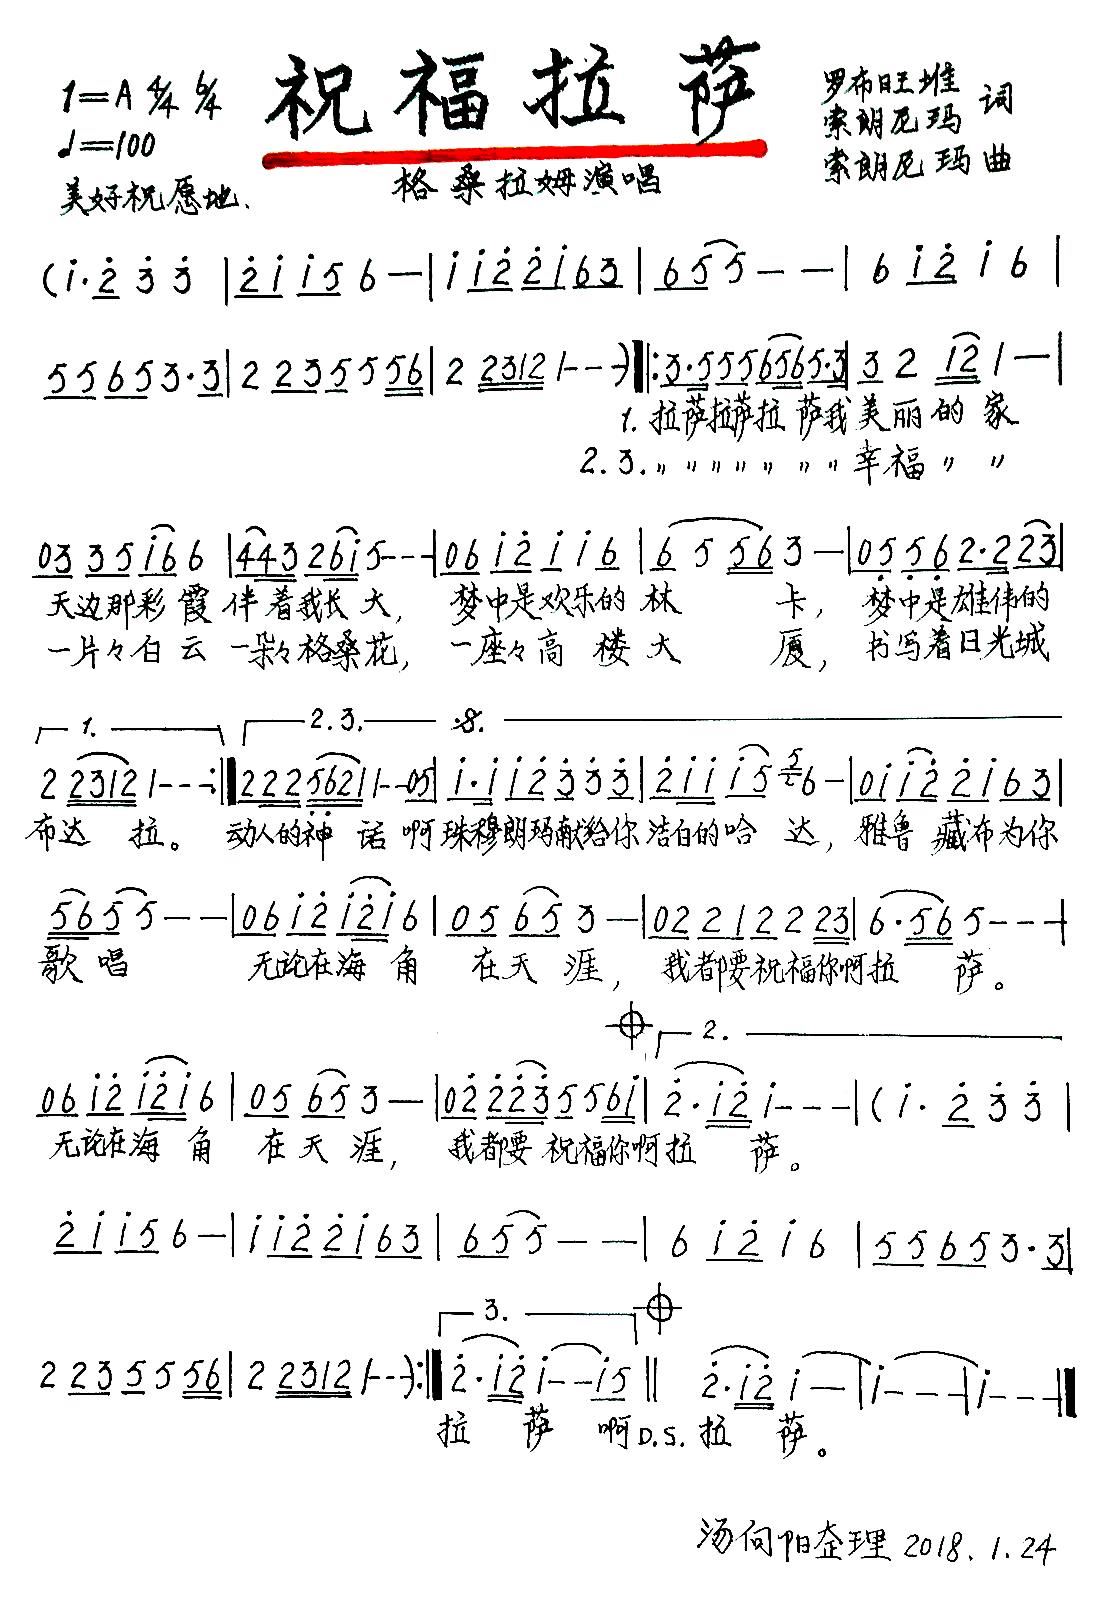 祝福拉萨
1=A 4/4 6/4
♩=100
美好祝愿地.
格桑拉姆演唱
罗布旺堆
索朗尼玛 词
索朗尼玛 曲
(i·2 3 3 | 2 i i 5 6 — | i i 2 2 i 6 3 | 6 5 5 — — | 6 i 2 i 6 |
5 5 6 5 3·3 | 2 2 3 5 5 5 6 | 2 2 3 1 2 1 - - -) ‖: 3·5 5 5 6 5 6 5·3 | 3 2 1 2 1 — |
1. 拉萨拉萨拉 萨我 美丽的 家
2.3. 〃〃〃〃〃〃〃 幸福 〃 〃
0 3 3 5 i 6 6 | 4 4 3 2 6 i 5 - - - | 0 6 i 2 i i 6 | 6 5 5 6 3 — | 0 5 5 6 2·2 2 3 |
天边那彩霞 伴着我长大, 梦中是欢乐的林 卡, 梦中是雄伟的
一片々白云 一朵々格桑花, 一座々高楼大 厦, 书写着日光城
1. 2.3. 𝄋
2 2 3 1 2 1 - - - :‖ 2 2 2 5 6 2 1 1 - - 0 5 | i·i i 2 3 3 3 | 2 i i i 5 6 — | 0 i i 2 2 i 6 3 |
布达 拉。 动人的神 话 啊 珠穆朗玛献给你 洁白的哈 达, 雅鲁藏布为你
5 6 5 5 — — | 0 6 i 2 i 2 i 6 | 0 5 6 5 3 — | 0 2 2 1 2 2 2 3 | 6·5 6 5 - - - |
歌唱 无论在海角 在天涯, 我都要祝福你啊拉 萨。
𝄌 2.
0 6 i 2 i 2 i 6 | 0 5 6 5 3 — | 0 2 2 2 3 5 5 6 i | 2·i 2 i - - - | (i· 2 3 3 |
无论在海角 在天涯, 我都要祝福你啊拉 萨。
2 i i 5 6 — | i i 2 2 i 6 3 | 6 5 5 — — | 6 i 2 i 6 | 5 5 6 5 3·3 |
3. 𝄌
2 2 3 5 5 5 6 | 2 2 3 1 2 1 - - -) :‖ 2·i 2 i - - i 5 ‖ 2·i 2 i — | i - - - | i - - - ‖
拉 萨 啊 D.S. 拉 萨。
汤向阳整理 2018.1.24